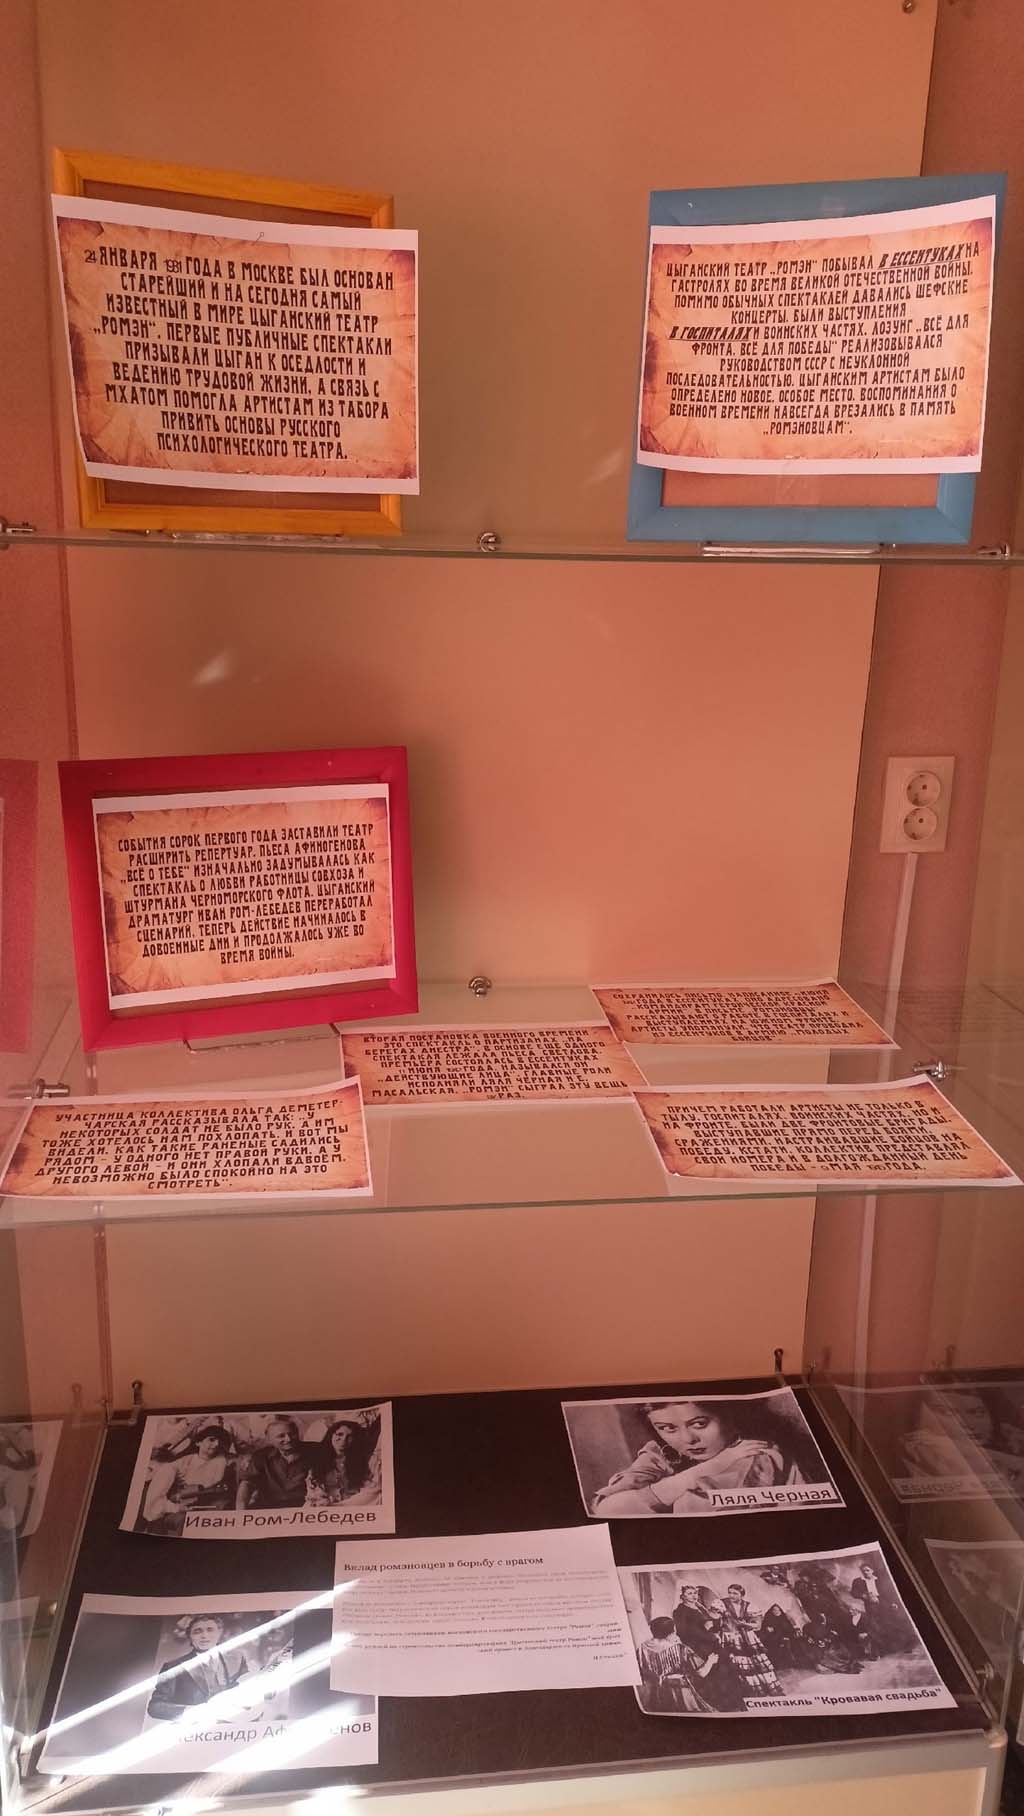 24 ЯНВАРЯ 1931 ГОДА В МОСКВЕ БЫЛ ОСНОВАН
СТАРЕЙШИЙ И НА СЕГОДНЯ САМЫЙ
ИЗВЕСТНЫЙ В МИРЕ ЦЫГАНСКИЙ ТЕАТР
„РОМЭН“. ПЕРВЫЕ ПУБЛИЧНЫЕ СПЕКТАКЛИ
ПРИЗЫВАЛИ ЦЫГАН К ОСЕДЛОСТИ И
ВЕДЕНИЮ ТРУДОВОЙ ЖИЗНИ, А СВЯЗЬ С
МХАТОМ ПОМОГЛА АРТИСТАМ ИЗ ТАБОРА
ПРИВИТЬ ОСНОВЫ РУССКОГО
ПСИХОЛОГИЧЕСКОГО ТЕАТРА.
ЦЫГАНСКИЙ ТЕАТР „РОМЭН“ ПОБЫВАЛ В ЕССЕНТУКАХ НА
ГАСТРОЛЯХ ВО ВРЕМЯ ВЕЛИКОЙ ОТЕЧЕСТВЕННОЙ ВОЙНЫ.
ПОМИМО ОБЫЧНЫХ СПЕКТАКЛЕЙ ДАВАЛИСЬ ШЕФСКИЕ
КОНЦЕРТЫ, БЫЛИ ВЫСТУПЛЕНИЯ
В ГОСПИТАЛЯХ И ВОИНСКИХ ЧАСТЯХ. ЛОЗУНГ „ВСЁ ДЛЯ
ФРОНТА, ВСЁ ДЛЯ ПОБЕДЫ“ РЕАЛИЗОВЫВАЛСЯ
РУКОВОДСТВОМ СССР С НЕУКЛОННОЙ
ПОСЛЕДОВАТЕЛЬНОСТЬЮ. ЦЫГАНСКИМ АРТИСТАМ БЫЛО
ОПРЕДЕЛЕНО НОВОЕ, ОСОБОЕ МЕСТО. ВОСПОМИНАНИЯ О
ВОЕННОМ ВРЕМЕНИ НАВСЕГДА ВРЕЗАЛИСЬ В ПАМЯТЬ
„РОМЭНОВЦАМ“.
СОБЫТИЯ СОРОК ПЕРВОГО ГОДА ЗАСТАВИЛИ ТЕАТР
РАСШИРИТЬ РЕПЕРТУАР. ПЬЕСА АФИНОГЕНОВА
„ВСЁ О ТЕБЕ“ ИЗНАЧАЛЬНО ЗАДУМЫВАЛАСЬ КАК
СПЕКТАКЛЬ О ЛЮБВИ РАБОТНИЦЫ СОВХОЗА И
ШТУРМАНА ЧЕРНОМОРСКОГО ФЛОТА. ЦЫГАНСКИЙ
ДРАМАТУРГ ИВАН РОМ-ЛЕБЕДЕВ ПЕРЕРАБОТАЛ
СЦЕНАРИЙ. ТЕПЕРЬ ДЕЙСТВИЕ НАЧИНАЛОСЬ В
ДОВОЕННЫЕ ДНИ И ПРОДОЛЖАЛОСЬ УЖЕ ВО
ВРЕМЯ ВОЙНЫ.
ВТОРАЯ ПОСТАНОВКА ВОЕННОГО ВРЕМЕНИ
ЭТО СПЕКТАКЛЬ О ПАРТИЗАНАХ „НА
БЕРЕГАХ ДНЕСТРА“. В ОСНОВЕ ЕЩЕ ОДНОГО
СПЕКТАКЛЯ ЛЕЖАЛА ПЬЕСА СВЕТЛОВА.
ПРЕМЬЕРА СОСТОЯЛАСЬ В ЕССЕНТУКАХ
ИЮНЯ ГОДА, НАЗЫВАЛСЯ ОН
„ДЕЙСТВУЮЩИЕ ЛИЦА“. ГЛАВНЫЕ РОЛИ
ИСПОЛНЯЛИ ЛЯЛЯ ЧЕРНАЯ И Е.
МАСАЛЬСКАЯ. „РОМЭН“ СЫГРАЛ ЭТУ ВЕЩЬ
РАЗ.
УЧАСТНИЦА КОЛЛЕКТИВА ОЛЬГА ДЕМЕТЕР-
ЧАРСКАЯ РАССКАЗЫВАЛА ТАК: „У
НЕКОТОРЫХ СОЛДАТ НЕ БЫЛО РУК, А ИМ
ТОЖЕ ХОТЕЛОСЬ НАМ ПОХЛОПАТЬ. И ВОТ МЫ
ВИДЕЛИ, КАК ТАКИЕ РАНЕНЫЕ САДИЛИСЬ
РЯДОМ – У ОДНОГО НЕТ ПРАВОЙ РУКИ, А У
ДРУГОГО ЛЕВОЙ – И ОНИ ХЛОПАЛИ ВДВОЁМ.
НЕВОЗМОЖНО БЫЛО СПОКОЙНО НА ЭТО
СМОТРЕТЬ“.
ПРИЧЕМ РАБОТАЛИ АРТИСТЫ НЕ ТОЛЬКО В
ТЫЛУ, ГОСПИТАЛЯХ, ВОИНСКИХ ЧАСТЯХ, НО И
НА ФРОНТЕ. БЫЛИ ДВЕ ФРОНТОВЫЕ БРИГАДЫ,
ВЫСТУПАВШИЕ ПРЯМО ПЕРЕД
СРАЖЕНИЯМИ, НАСТРАИВАВШИЕ БОЙЦОВ НА
ПОБЕДУ. КСТАТИ, КОЛЛЕКТИВ ПРЕДЪЯВЛЯЛ
СВОИ НОМЕРА И В ДОЛГОЖДАННЫЙ ДЕНЬ
ПОБЕДЫ – 9 МАЯ 1945 ГОДА.
Иван Ром-Лебедев
Ляля Черная
Вклад ромэновцев в борьбу с врагом
Спектакль "Кровавая свадьба"